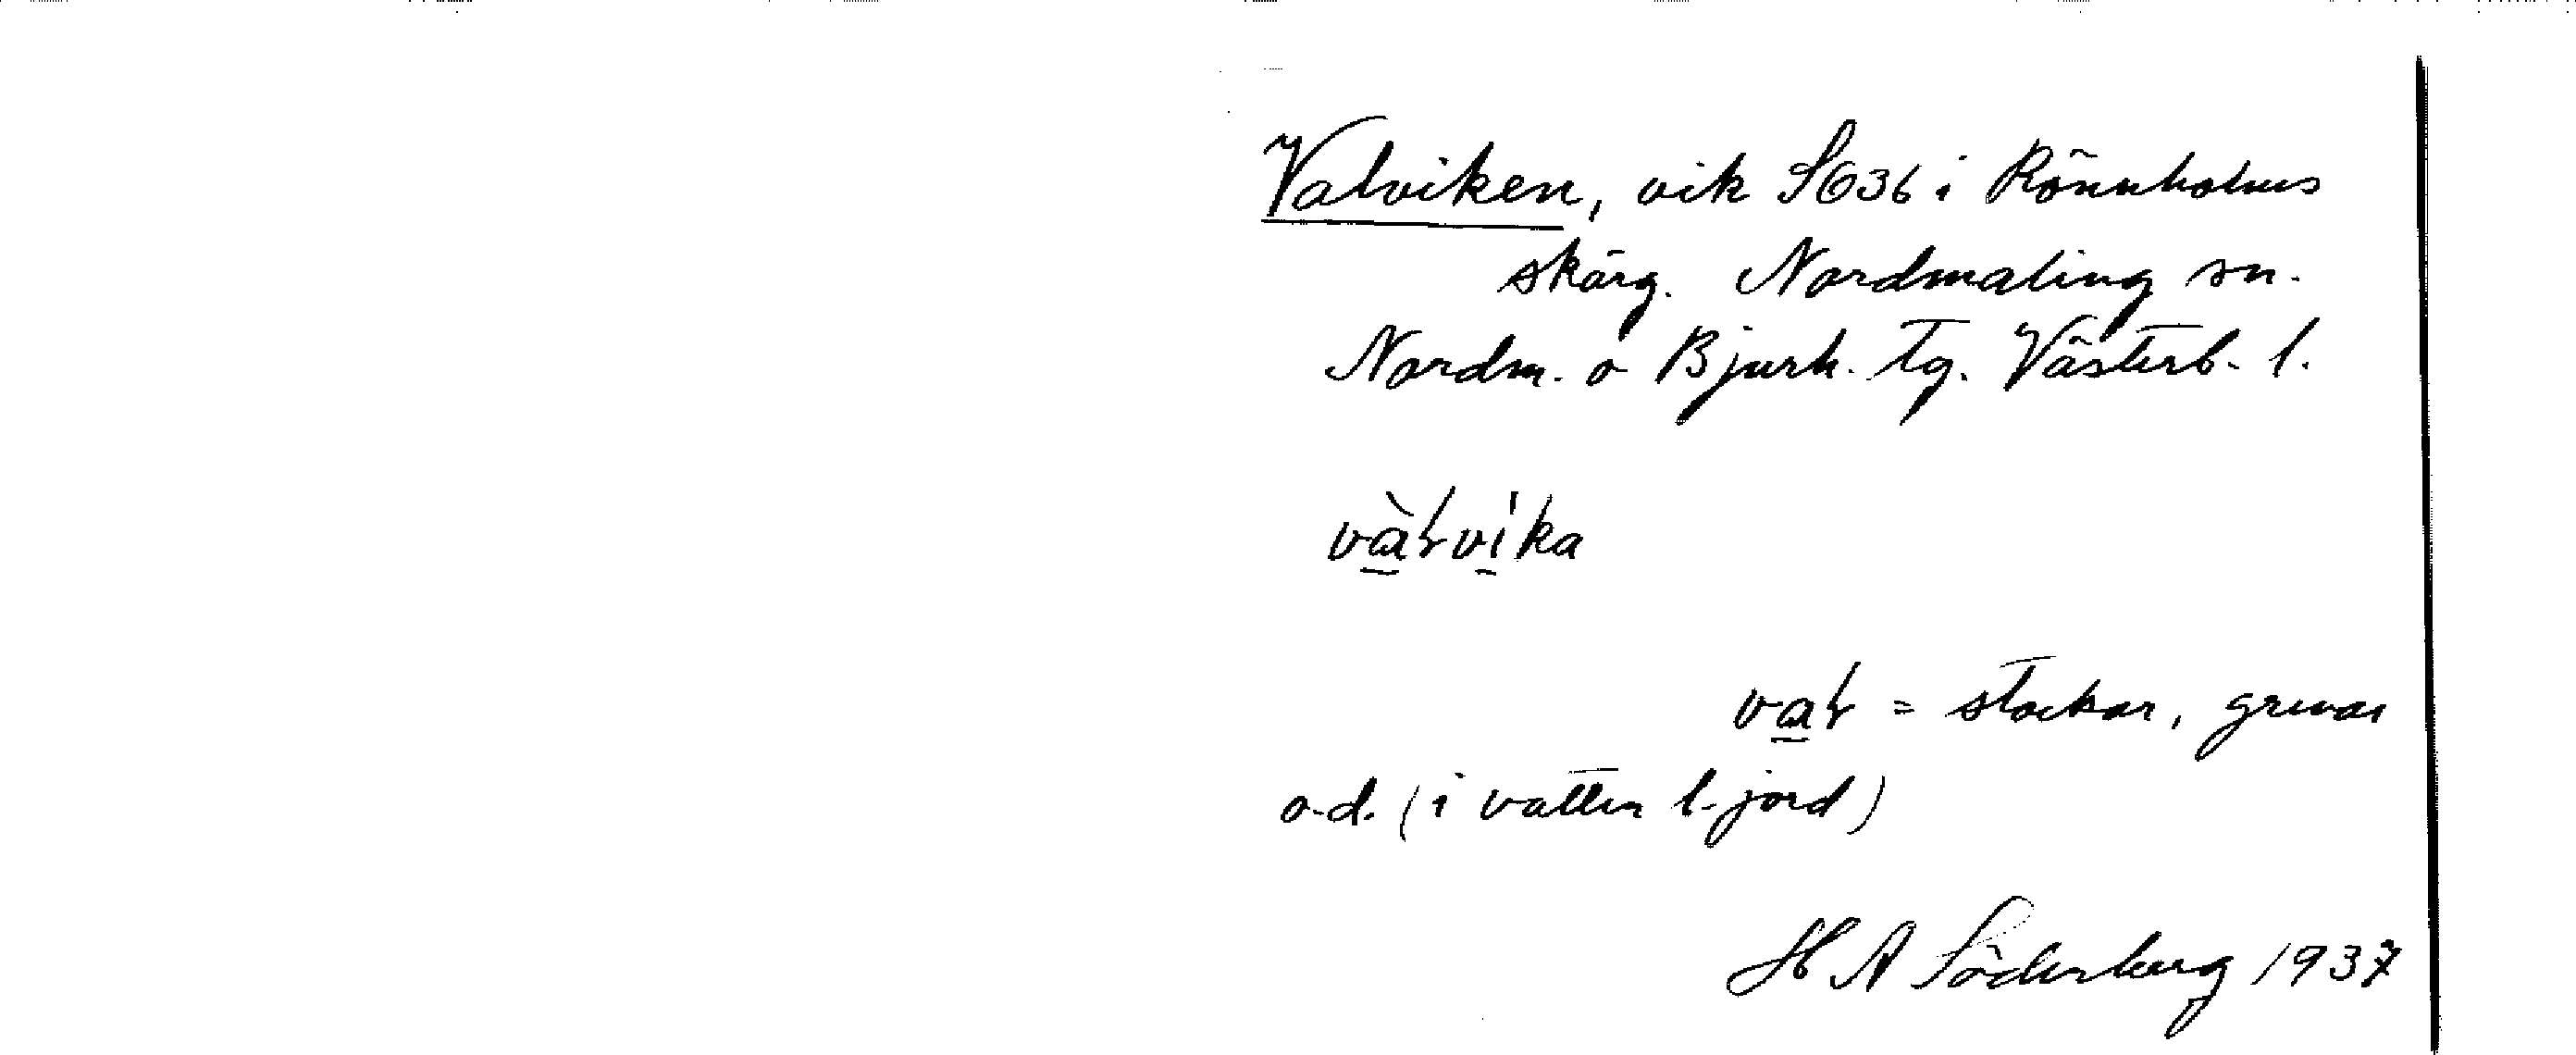 Valviken, vik SO36 i Rönnholms
skärg. Nordmaling sn.
Nordm. o Bjurh. tg. Västerb. l.
và̲ɫví̲ka
va̲ɫ = stockar, grenar
o.d. (i vatten l. jord)
H A Söderberg 1937